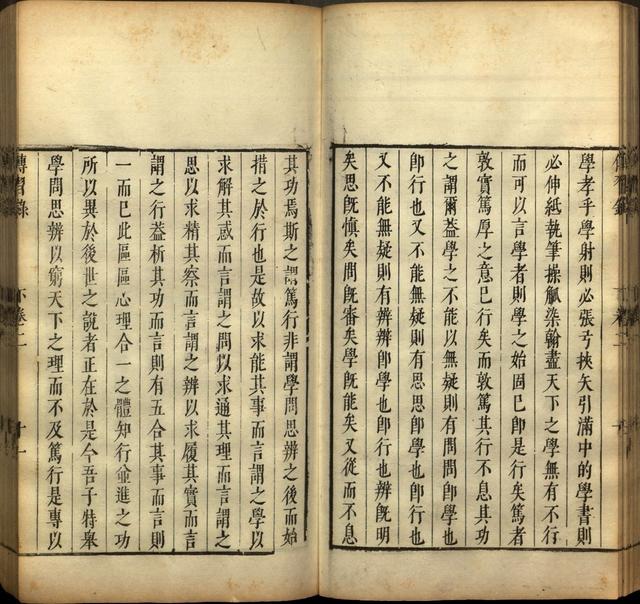 學孝乎學射則必張弓挾矢引滿中的學書則
必伸紙執筆操觚染翰盡天下之學無有不行
而可以言學者則學之始固已卽是行矣篤者
敦實篤厚之意已行矣而敦篤其行不息其功
之謂爾葢學之不能以無疑則有問問卽學也
卽行也又不能無疑則有思思卽學也卽行也
又不能無疑則有辨辨卽學也卽行也辨旣明
矣思旣愼矣問旣審矣學旣能矣又從而不息
其功焉斯之謂篤行非謂學問思辨之後而始
措之於行也是故以求能其事而言謂之學以
求解其惑而言謂之問以求通其理而言謂之
思以求精其察而言謂之辨以求履其實而言
謂之行葢析其功而言則有五合其事而言則
一而已此區區心理合一之體知行並進之功
所以異於後世之說者正在於是今吾子特舉
學問思辨以窮天下之理而不及篤行是專以
傳習錄 下卷二 十一